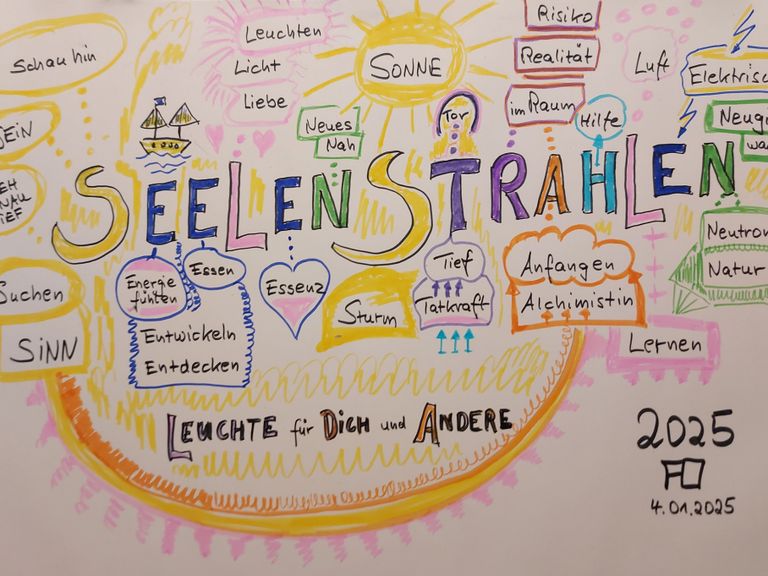 Schau hin
SEIN
SEELENSTRAHLEN
Leuchten
Licht
Liebe
Neues
Nah
SONNE
Tor
Risiko
Realität
im Raum
Hilfe
Luft
Suchen
SINN
Energie
fühlen
Essen
Entwickeln
Entdecken
Essenz
Sturm
Tief
Tatkraft
Anfangen
Alchimistin
Lernen
Natur
LEUCHTE für DICH und ANDERE
2025
4.01.2025